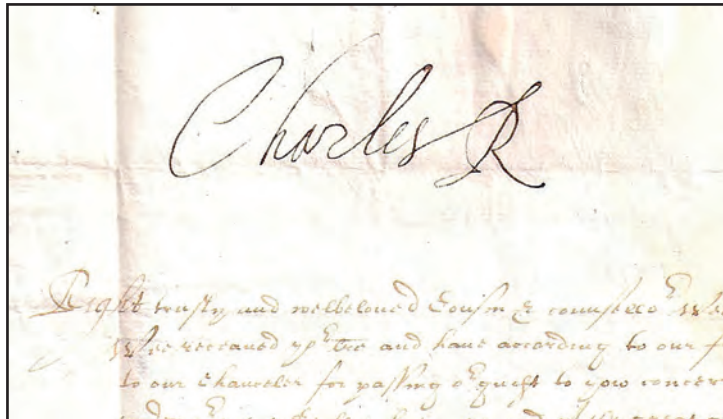 Charles R
Right trusty and welbeloued Cousin & counsellor We
We receaued yor tre and haue according to our
to our Chanceler for passing or guift to yow concer